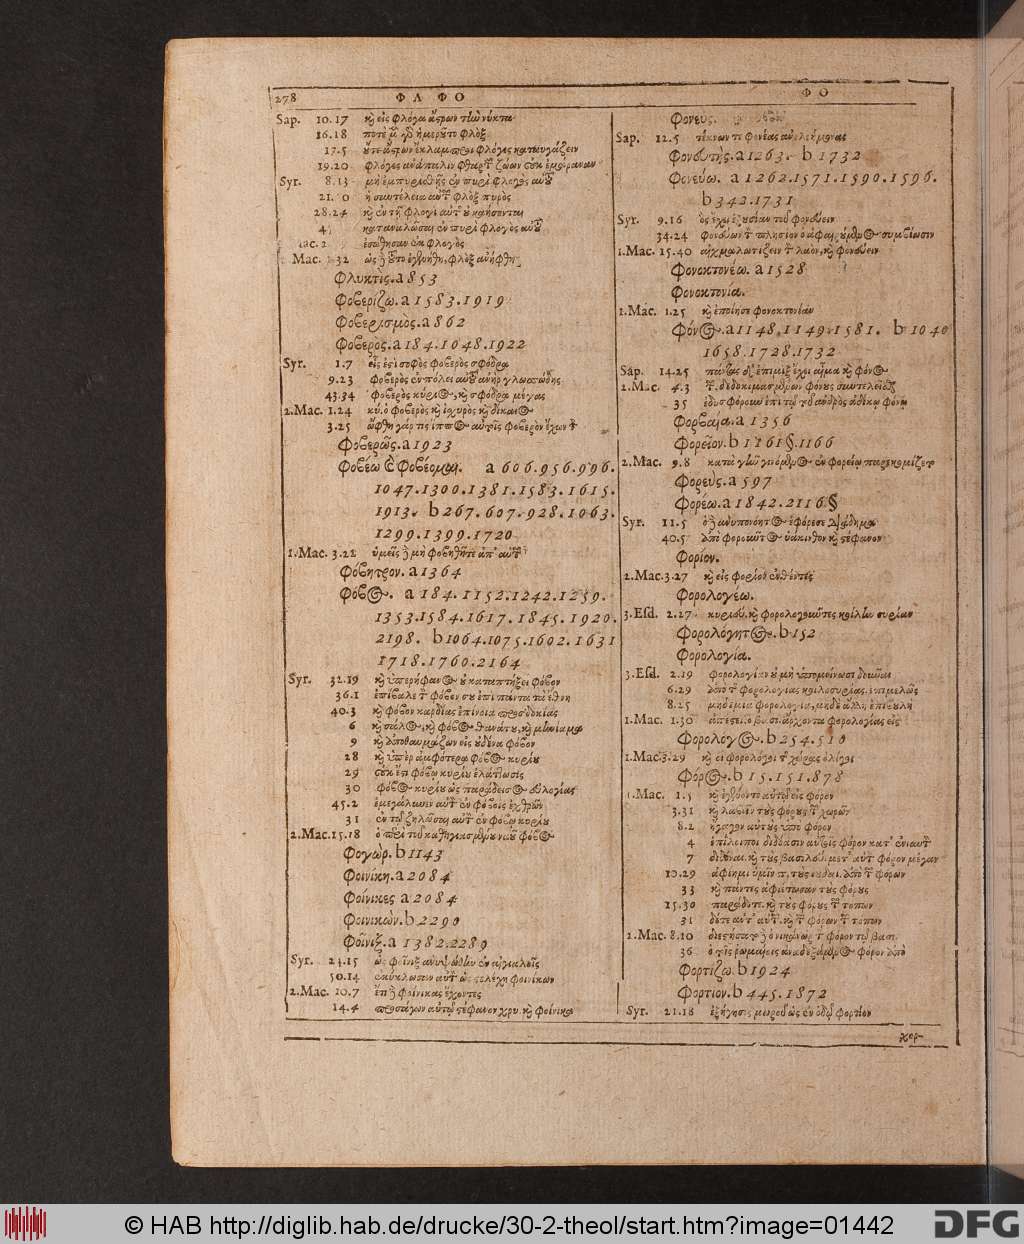 278 ΦΛ ΦΟ
Sap. 10.17 καὶ εἰς φλόγα ἄστρων τὴν νύκτα
16.18 ποτὲ μὲν γὰρ ἡμεροῦτο φλὸξ
17.5 οὔτε ἄστρων ἔκλαμπροι φλόγες καταυγάζειν
19.20 φλόγες ἀνάπαλιν φθαρτῶν ζώων οὐκ ἐμάραναν
Syr. 8.13 μὴ ἐμπυρισθῇς ἐν πυρὶ φλογὸς αὐτοῦ
21. 0 ἡ συντέλεια αὐτῶν φλὸξ πυρὸς
28.24 καὶ ἐν τῇ φλογὶ αὐτοῦ οὐ καήσονται
ἐσώθησαν ἐκ φλογὸς
Mac. 32 ὡς τοῦτο ἐγενήθη, φλὸξ ἀνήφθη
Φλυκτὶς. a 853
Φοβερίζω. a 1583.1919
Φοβερισμὸς. a 862
Φοβερος. a 184.1048.1922
Syr. 1.7 εἷς ἐστὶ σοφὸς φοβερὸς σφόδρα
9.23 φοβερὸς ἐν πόλει αὐτοῦ ἀνὴρ γλωσσώδης
43.34 φοβερὸς κύριος, καὶ σφόδρα μέγας
2.Mac. 1.24 κύ. ὁ φοβερὸς καὶ ἰσχυρὸς καὶ δίκαιος
3.25 ὤφθη γάρ τις ἵππος αὐτοῖς φοβερὸν ἔχων τ
Φοβερῶς. a 1923
Φοβέω & Φοβέομαι. a 606.956.996.
1047.1300.1381.1583.1615.
1913. b 267.607.928.1063.
1299.1399.1720
1.Mac. 3.22 ὑμεῖς δὲ μὴ φοβηθῆτε ἀπ' αὐτῶν
Φόβητρον. a 1364
Φόβος. a 184.1152.1242.1259.
1353.1584.1617.1845.1920.
2198. b 1064.1075.1602.1631
1718.1760.2164
Syr. 32.19 καὶ ὑπερήφανος οὐ καταπτήξει φόβον
36.1 ἐπίβαλε τ φόβον σου ἐπὶ πάντα τὰ ἔθνη
40.3 καὶ φόβον καρδίας ἐπίνοια προσδοκίας
6 καὶ σάλος, καὶ φόβος θανάτου, καὶ μήνιαμα
9 καὶ ἀποθαυμάζων εἰς οὐδένα φόβον
28 καὶ ὑπὲρ ἀμφότερα φόβος κυρίου
29 οὐκ ἔστι φόβῳ κυρίου ἐλάττωσις
30 φόβος κυρίου ὡς παράδεισος εὐλογίας
45.2 ἐμεγάλυνεν αὐτ ἐν φόβοις ἐχθρῶν
31 ἐν τῷ ζηλῶσαι αὐτ ἐν φόβῳ κυρίου
2.Mac. 15.18 ὁ περὶ τοῦ καθηγιασμένου ναοῦ φόβος
Φογὼρ. b 1143
Φοινίκη. a 2084
Φοίνικες a 2084
Φοινικών. b 2290
Φοῖνιξ. a 1382.2289
Syr. 24.15 ὡς φοῖνιξ ἀνυψώθην ἐν αἰγιαλοῖς
50.14 ἐκύκλωσαν αὐτ ὡς στελέχη φοινίκων
2.Mac. 10.7 ἔτι δὲ φοίνικας ἔχοντες
14.4 προσάγων αὐτῷ στέφανον χρυ. καὶ φοίνικα
ΦΟ
Φονεύς.
Sap. 12.5 τέκνων τε φονέας ἀνελεήμονας
Φονευτὴς. a 1263. b 1732
Φονεύω. a 1262.1571.1590.1596.
b 342.1731
Syr. 9.16 ὃς ἔχει ἐξουσίαν τοῦ φονεύειν
34.24 φονεύων τ πλησίον ὁ ἀφαιρούμενος συμβίωσιν
1.Mac. 15.40 αἰχμαλωτίζειν τ λαὸν, καὶ φονεύειν
Φονοκτονέω. a 1528
Φονοκτονία.
1.Mac. 1.25 καὶ ἐποίησε φονοκτονίαν
Φόνος. a 1148.1149.1581. b 1040
1658.1728.1732
Sap. 14.25 πάντας δ' ἐπιμὶξ ἔχει αἷμα καὶ φόνος
2.Mac. 4.3 τ. δεδοκιμασμένων φόνους συντελεῖσθαι
35 ἐδυσφόρουν ἐπὶ τῷ τοῦ ἀνδρὸς ἀδίκῳ φόνῳ
Φορβαία. a 1356
Φορεῖον. b 1161§.1166
2.Mac. 9.8 κατὰ γῆν γενόμενος ἐν φορείῳ παρεκομίζετο
Φορεὺς. a 597
Φορέω. a 1842.2116§
Syr. 11.5 ὁ δὲ ἀνυπονόητος ἐφόρεσε διάδημα
40.5 ἀπὸ φοροῦντος ὑάκινθον καὶ στέφανον
Φορίον.
2.Mac. 3.27 καὶ εἰς φορίον ἐνθέντες
Φορολογέω.
3.Esd. 2.27 κυριευ. καὶ φορολογοῦντες κοίλην συρίαν
Φορολόγητος. b 152
Φορολογία.
3.Esd. 2.19 φορολογίαν οὐ μὴ ὑπομείνωσι δοῦναι
6.29 ἀπὸ τ φορολογίας κοιλοσυρίας ἐπιμελῶς
8.25 μηδεμία φορολογία, μηδὲ ἄλλη ἐπιβολὴ
1.Mac. 1.30 ἀπέστει. ὁ βασι. ἄρχοντα φορολογίας εἰς
Φορολόγος. b 254.510
1.Mac. 3.29 καὶ οἱ φορολόγοι τ χώρας ὀλίγοι
Φόρος. b 15.151.878
1.Mac. 1.5 καὶ ἐγένοντο αὐτῷ εἰς φόρον
3.31 καὶ λαβεῖν τοὺς φόρους τ χωρῶν
8.2 ἤγαγον αὐτοὺς ὑπὸ φόρον
4 ἐπίλοιποι διδόασιν αὐτοῖς φόρον κατ' ἐνιαυτ
7 διδόναι. καὶ τοὺς βασιλεύ. μετ' αὐτ φόρον μέγαν
10.29 ἀφίημι ὑμῖν π. τοὺς ιουδαι. ἀπὸ τῶν φόρων
33 καὶ πάντες ἀφιέτωσαν τοὺς φόρους
15.30 παράδοτε. καὶ τοὺς φόρους τῶν τόπων
31 δότε ἀντ' αὐτῶν. καὶ τῶν φόρων τῶν τόπων
2.Mac. 8.10 διεστήσατο δὲ ὁ νικάνωρ τ φόρον τῷ βασι.
36 ὁ τοῖς ῥωμαίοις ἀναδεξάμενος φόρον ἀπὸ
Φορτίζω. b 1924
Φορτίον. b 445.1872
Syr. 21.18 ἐξήγησις μωροῦ ὡς ἐν ὁδῷ φορτίον
χερ-
© HAB http://diglib.hab.de/drucke/30-2-theol/start.htm?image=01442
DFG